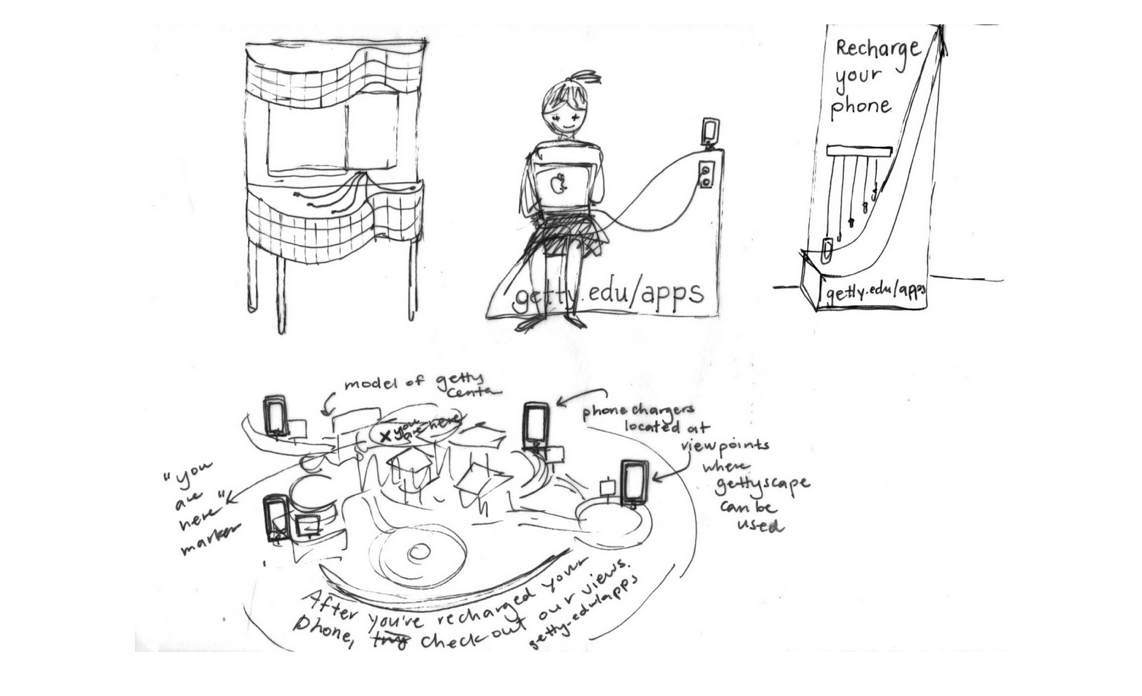 Recharge
your
phone
getty.edu/apps
getty.edu/apps
model of getty
Center
x you
are here
phone chargers
located at
viewpoints
where
gettyscape
can be
used
"you
are
here"
marker
After you're recharged your
phone, try check out our views.
getty.edu/apps